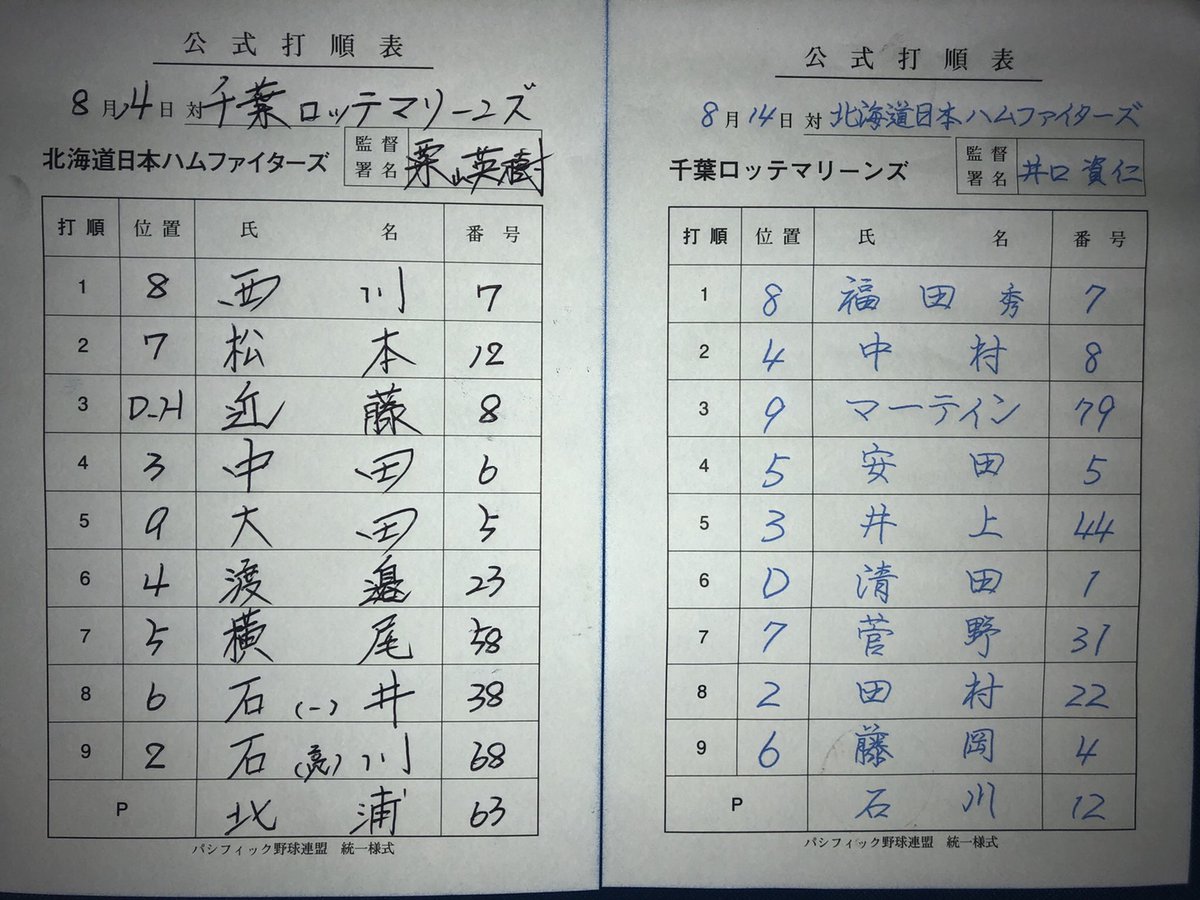 公式打順表
8月14日 対 千葉ロッテマリーンズ
北海道日本ハムファイターズ 監督署名 栗山英樹
打順 位置 氏名 番号
1 8 西川 7
2 7 松本 12
3 D-H 近藤 8
4 3 中田 6
5 9 大田 5
6 4 渡邉 23
7 5 横尾 58
8 6 石(一)井 38
9 2 石(亮)川 68
P 北浦 63
パシフィック野球連盟 統一様式
公式打順表
8月14日 対 北海道日本ハムファイターズ
千葉ロッテマリーンズ 監督署名 井口資仁
打順 位置 氏名 番号
1 8 福田秀 7
2 4 中村 8
3 9 マーティン 79
4 5 安田 5
5 3 井上 44
6 D 清田 1
7 7 菅野 31
8 2 田村 22
9 6 藤岡 4
P 石川 12
パシフィック野球連盟 統一様式